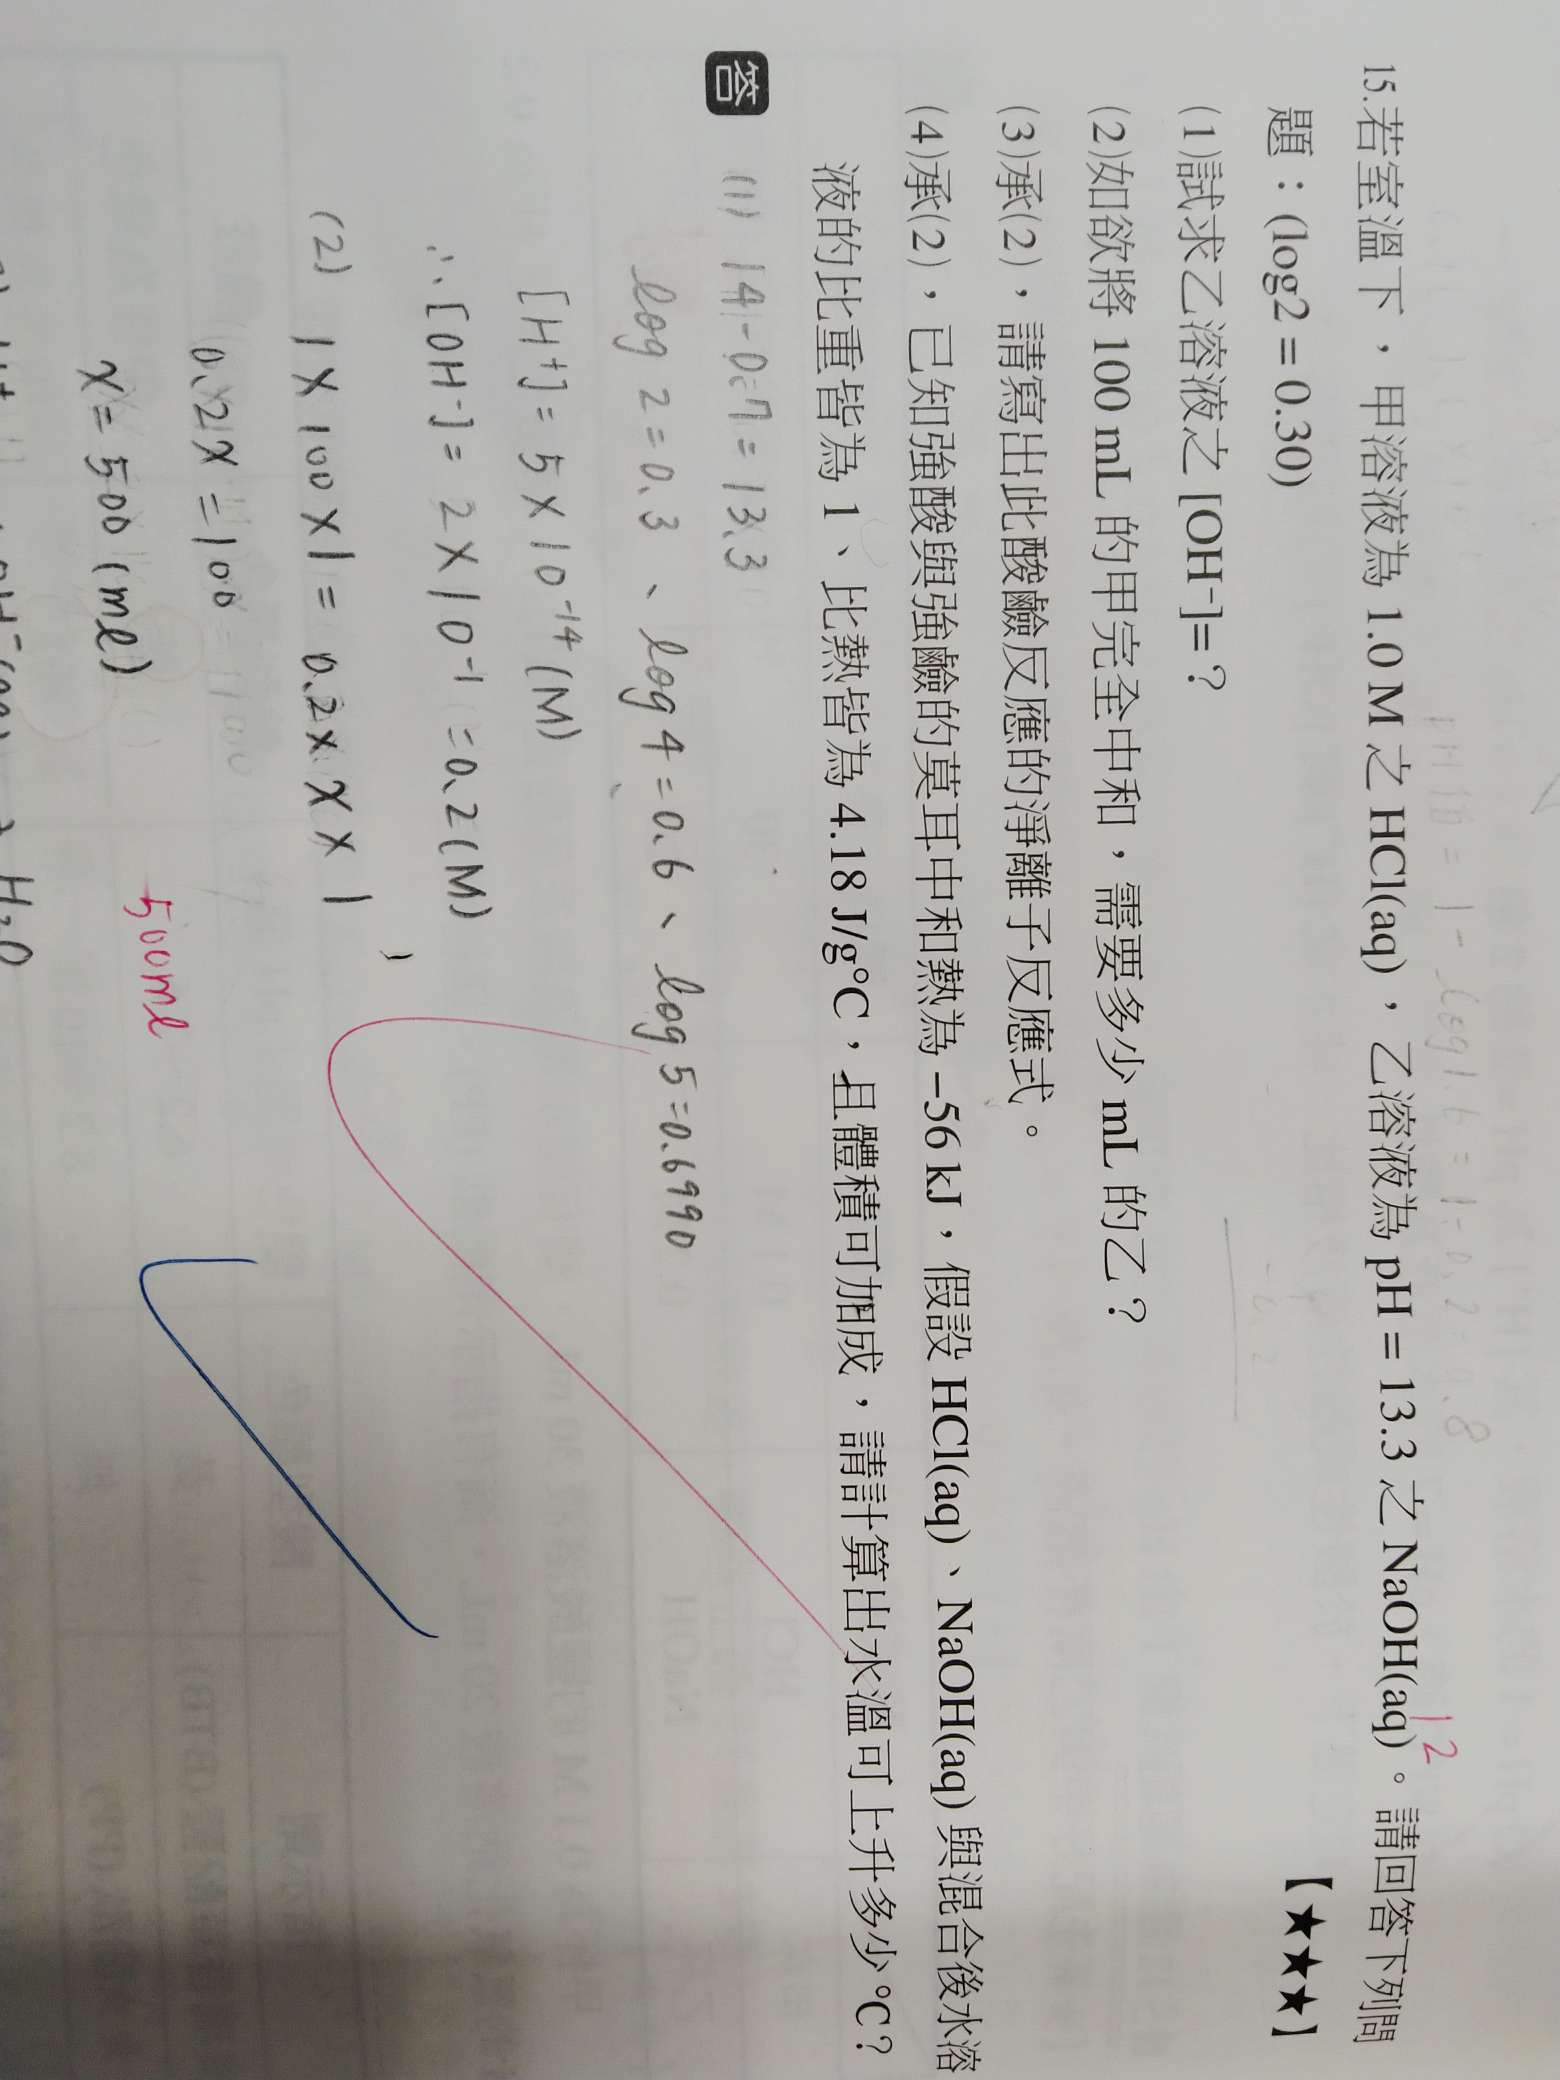 15.若室溫下，甲溶液為 1.0 M 之 HCl(aq)，乙溶液為 pH = 13.3 之 NaOH(aq)。請回答下列問
12
題：(log2 = 0.30)
【★★★】
(1)試求乙溶液之 [OH⁻]=？
(2)如欲將 100 mL 的甲完全中和，需要多少 mL 的乙？
(3)承(2)，請寫出此酸鹼反應的淨離子反應式。
(4)承(2)，已知強酸與強鹼的莫耳中和熱為 –56 kJ，假設 HCl(aq)、NaOH(aq) 與混合後水溶
液的比重皆為 1、比熱皆為 4.18 J/g°C，且體積可加成，請計算出水溫可上升多少 °C？
答 (1) 14-0.7=13.3
log 2=0.3、log 4=0.6、log 5=0.6990
[H⁺]= 5×10⁻¹⁴(M)
∴[OH⁻]= 2×10⁻¹=0.2(M)
(2) 1×100×1= 0.2×X×1
0.2X=100
X=500(ml)
500ml
H₂O